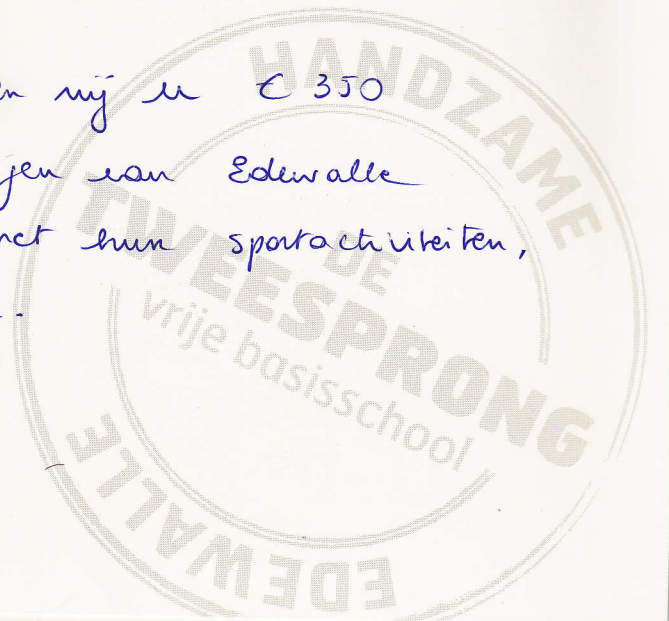 wij u € 350
van Edewalle
hun sportactiviteiten,
HANDZAME
DE
TWEESPRONG
vrije basisschool
EDEWALLE